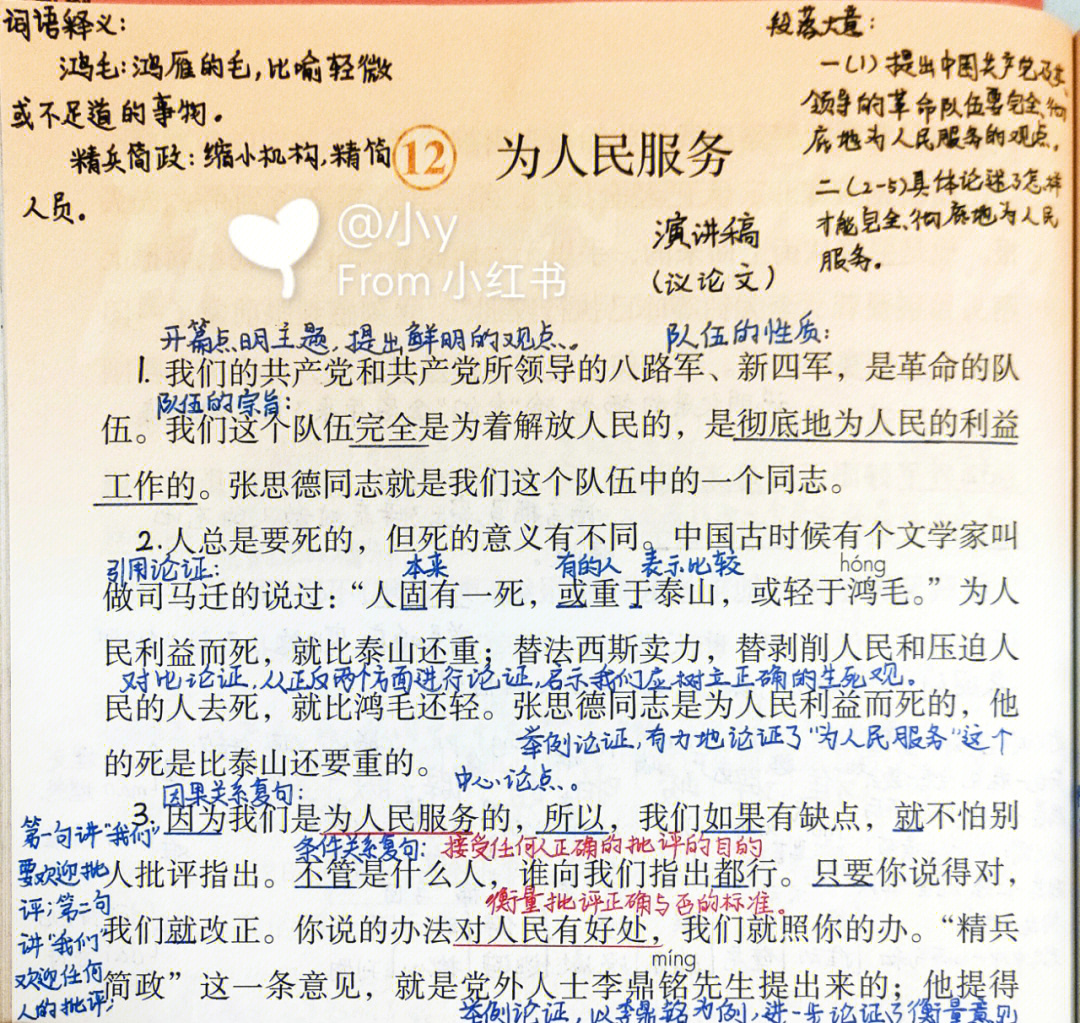 词语释义：
鸿毛：鸿雁的毛，比喻轻微
或不足道的事物。
精兵简政：缩小机构，精简
人员。
段落大意：
一(1) 提出中国共产党及其
领导的革命队伍要完全、彻
底地为人民服务的观点。
二(2-5)具体论述了怎样
才能完全、彻底地为人民
服务。
12 为人民服务
演讲稿
（议论文）
@小y
From 小红书
开篇点明主题，提出鲜明的观点。 队伍的性质：
1. 我们的共产党和共产党所领导的八路军、新四军，是革命的队
队伍的宗旨：
伍。我们这个队伍完全是为着解放人民的，是彻底地为人民的利益
工作的。张思德同志就是我们这个队伍中的一个同志。
2.人总是要死的，但死的意义有不同。中国古时候有个文学家叫
引用论证： 本来 有的人 表示比较 hóng
做司马迁的说过：“人固有一死，或重于泰山，或轻于鸿毛。”为人
民利益而死，就比泰山还重；替法西斯卖力，替剥削人民和压迫人
对比论证，从正反两个方面进行论证，启示我们应树立正确的生死观。
民的人去死，就比鸿毛还轻。张思德同志是为人民利益而死的，他
举例论证，有力地论证了“为人民服务”这个
的死是比泰山还要重的。
中心论点。
因果关系复句：
3. 因为我们是为人民服务的，所以，我们如果有缺点，就不怕别
条件关系复句：接受任何人正确的批评的目的
人批评指出。不管是什么人，谁向我们指出都行。只要你说得对，
衡量批评正确与否的标准。
我们就改正。你说的办法对人民有好处，我们就照你的办。“精兵
míng
简政”这一条意见，就是党外人士李鼎铭先生提出来的；他提得
举例论证，以李鼎铭为例，进一步论证了衡量意见
第一句讲“我们”
要欢迎批
评；第二句
讲“我们”
欢迎任何
人的批评；